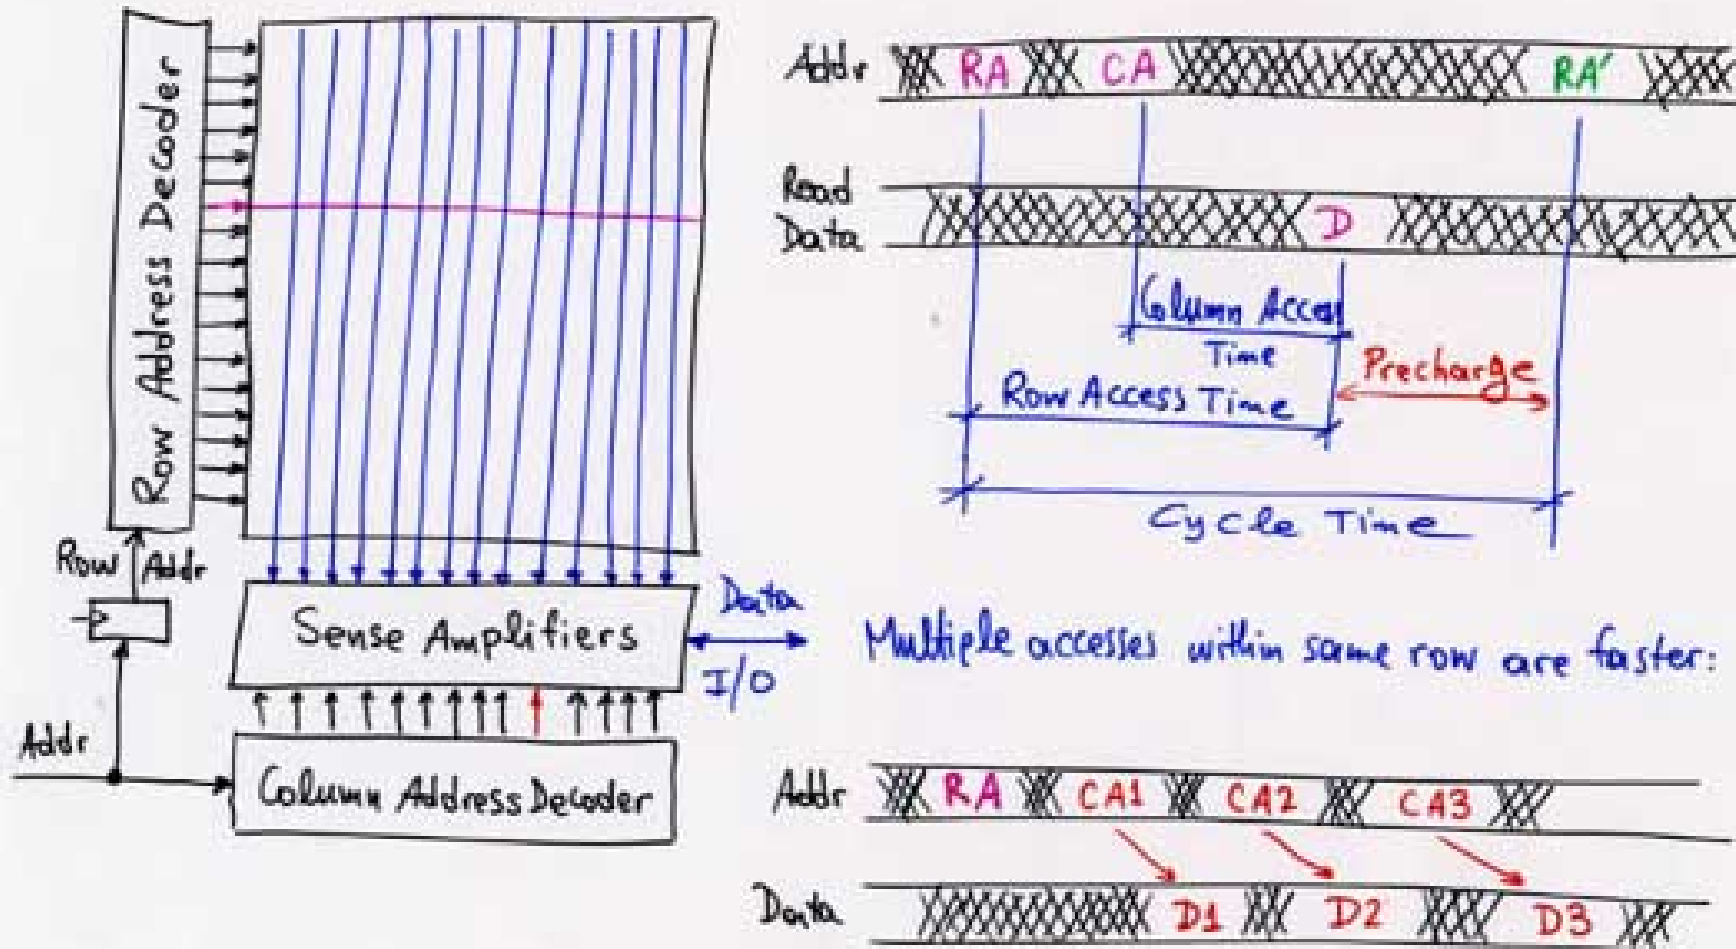 Row Address Decoder
Row Addr
Sense Amplifiers
Data
I/O
Addr
Column Address Decoder
Addr RA CA RA'
Read
Data D
Column Access
Time
Precharge
Row Access Time
Cycle Time
Multiple accesses within same row are faster:
Addr RA CA1 CA2 CA3
Data D1 D2 D3